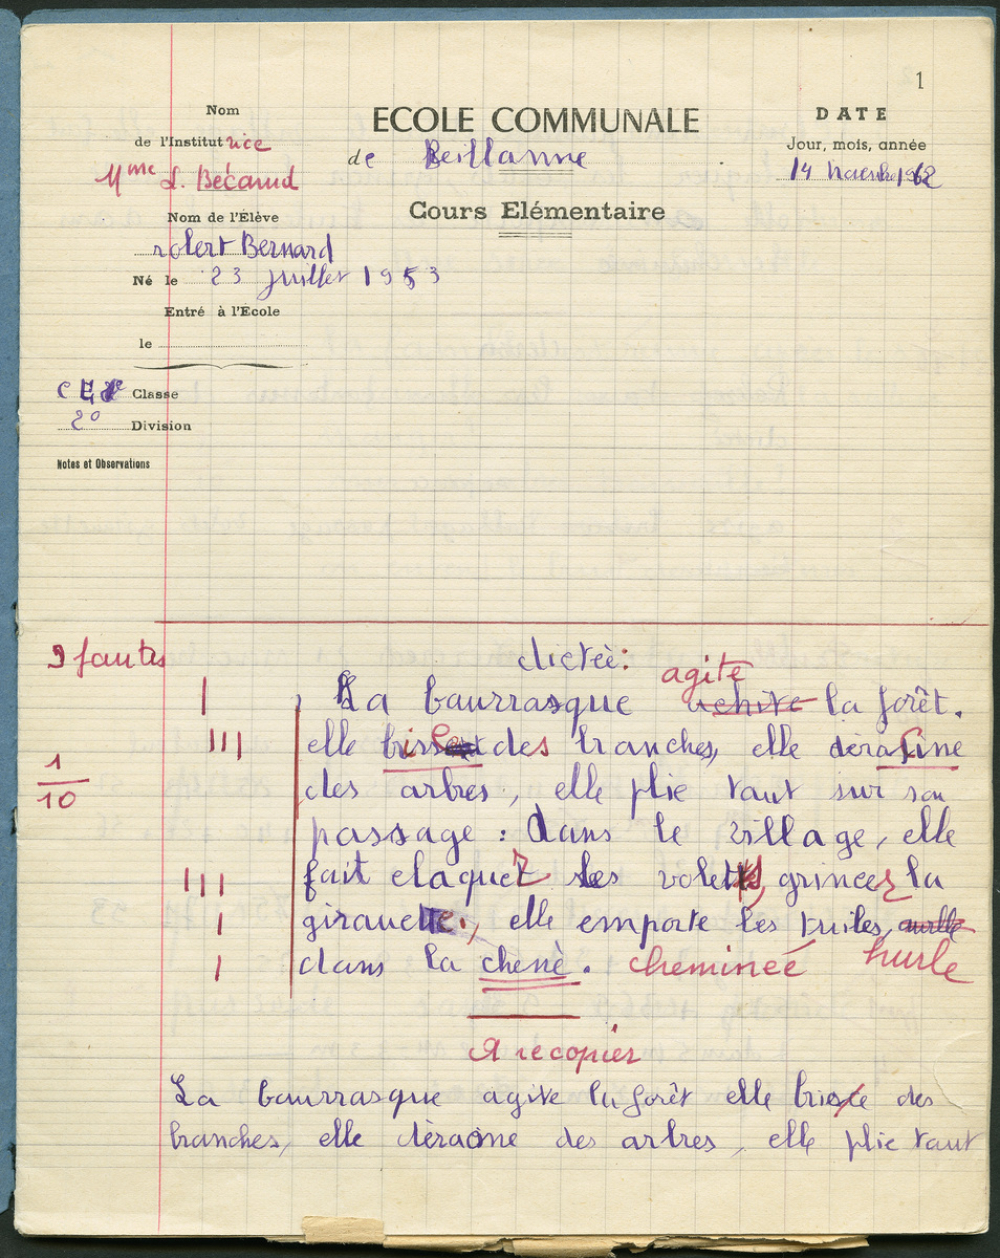 1
Nom
de l'Institutrice
Mme L. Bécaud
ECOLE COMMUNALE
de Beillanne
Cours Elémentaire
DATE
Jour, mois, année
14 1962
Nom de l'Élève
robert Bernard
Né le 23 juillet 1953
Entré à l'École
le
CE Classe
2° Division
Notes et Observations
9 fautes
1/10
dicteè:
agite
La baurrasque la forêt.
elle brise des branches, elle déracine
des arbres, elle plie taut sur son
passage : dans le village, elle
fait claquer les volets, grincer la
girauette., elle emporte les tuiles,
dans la chenè. cheminée hurle
A recopier
La baurrasque agite la forêt elle brise des
branches, elle dèracine des arbres, elle plie taut